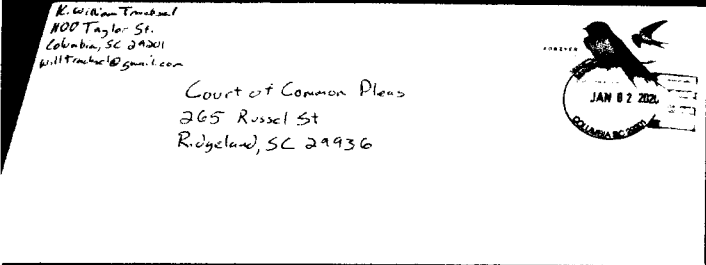 K. William Trachsel
1100 Taylor St.
Columbia, SC 29201
willtrachsel@gmail.com
FOREVER
Court of Common Pleas
265 Russel St
Ridgeland, SC 29936
JAN 02 2020
COLUMBIA SC 29201